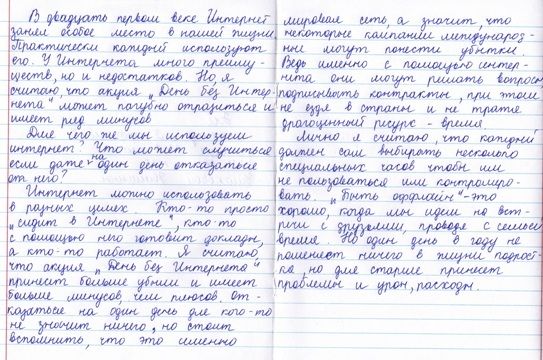 В двадцать первом веке Интернет
занял особое место в нашей жизни.
Практически каждый использует
его. У Интернета много преиму-
ществ, но и недостатков. Но, я
считаю, что акция „День без Интер-
нета" может пагубно отразиться и
имеет ряд минусов
Для чего же мы используем
интернет? Что может случиться
если даже на один день отказаться
от него?
Интернет можно использовать
в разных целях. Кто-то просто
„сидит в Интернете", кто-то
с помощью него готовит доклады,
а кто-то работает. Я считаю,
что акция „День без Интернета"
принесет больше убытки и имеет
больше минусов, чем плюсов. От-
казаться на один день для кого-то
не значит ничего, но стоит
вспомнить, что это именно
мировая сеть, а значит, что
некоторые кампании международ-
ные могут понести убытки.
Ведь именно с помощью интер-
нета они могут решать вопросы,
подписывать контракты, при этом
не ездя в страны и не тратя
драгоценный ресурс - время.
Лично я считаю, что каждый
должен сам выбирать несколько
специальных часов чтобы им
не пользоваться или контролиро-
вать. „Быть оффлайн" - это
хорошо, когда мы идем на вст-
речи с друзьями, проводя с семьей
время. Но один день в году не
поменяет ничего в жизни подрост-
ка, но для старше принесет
проблемы и урон, расходы.